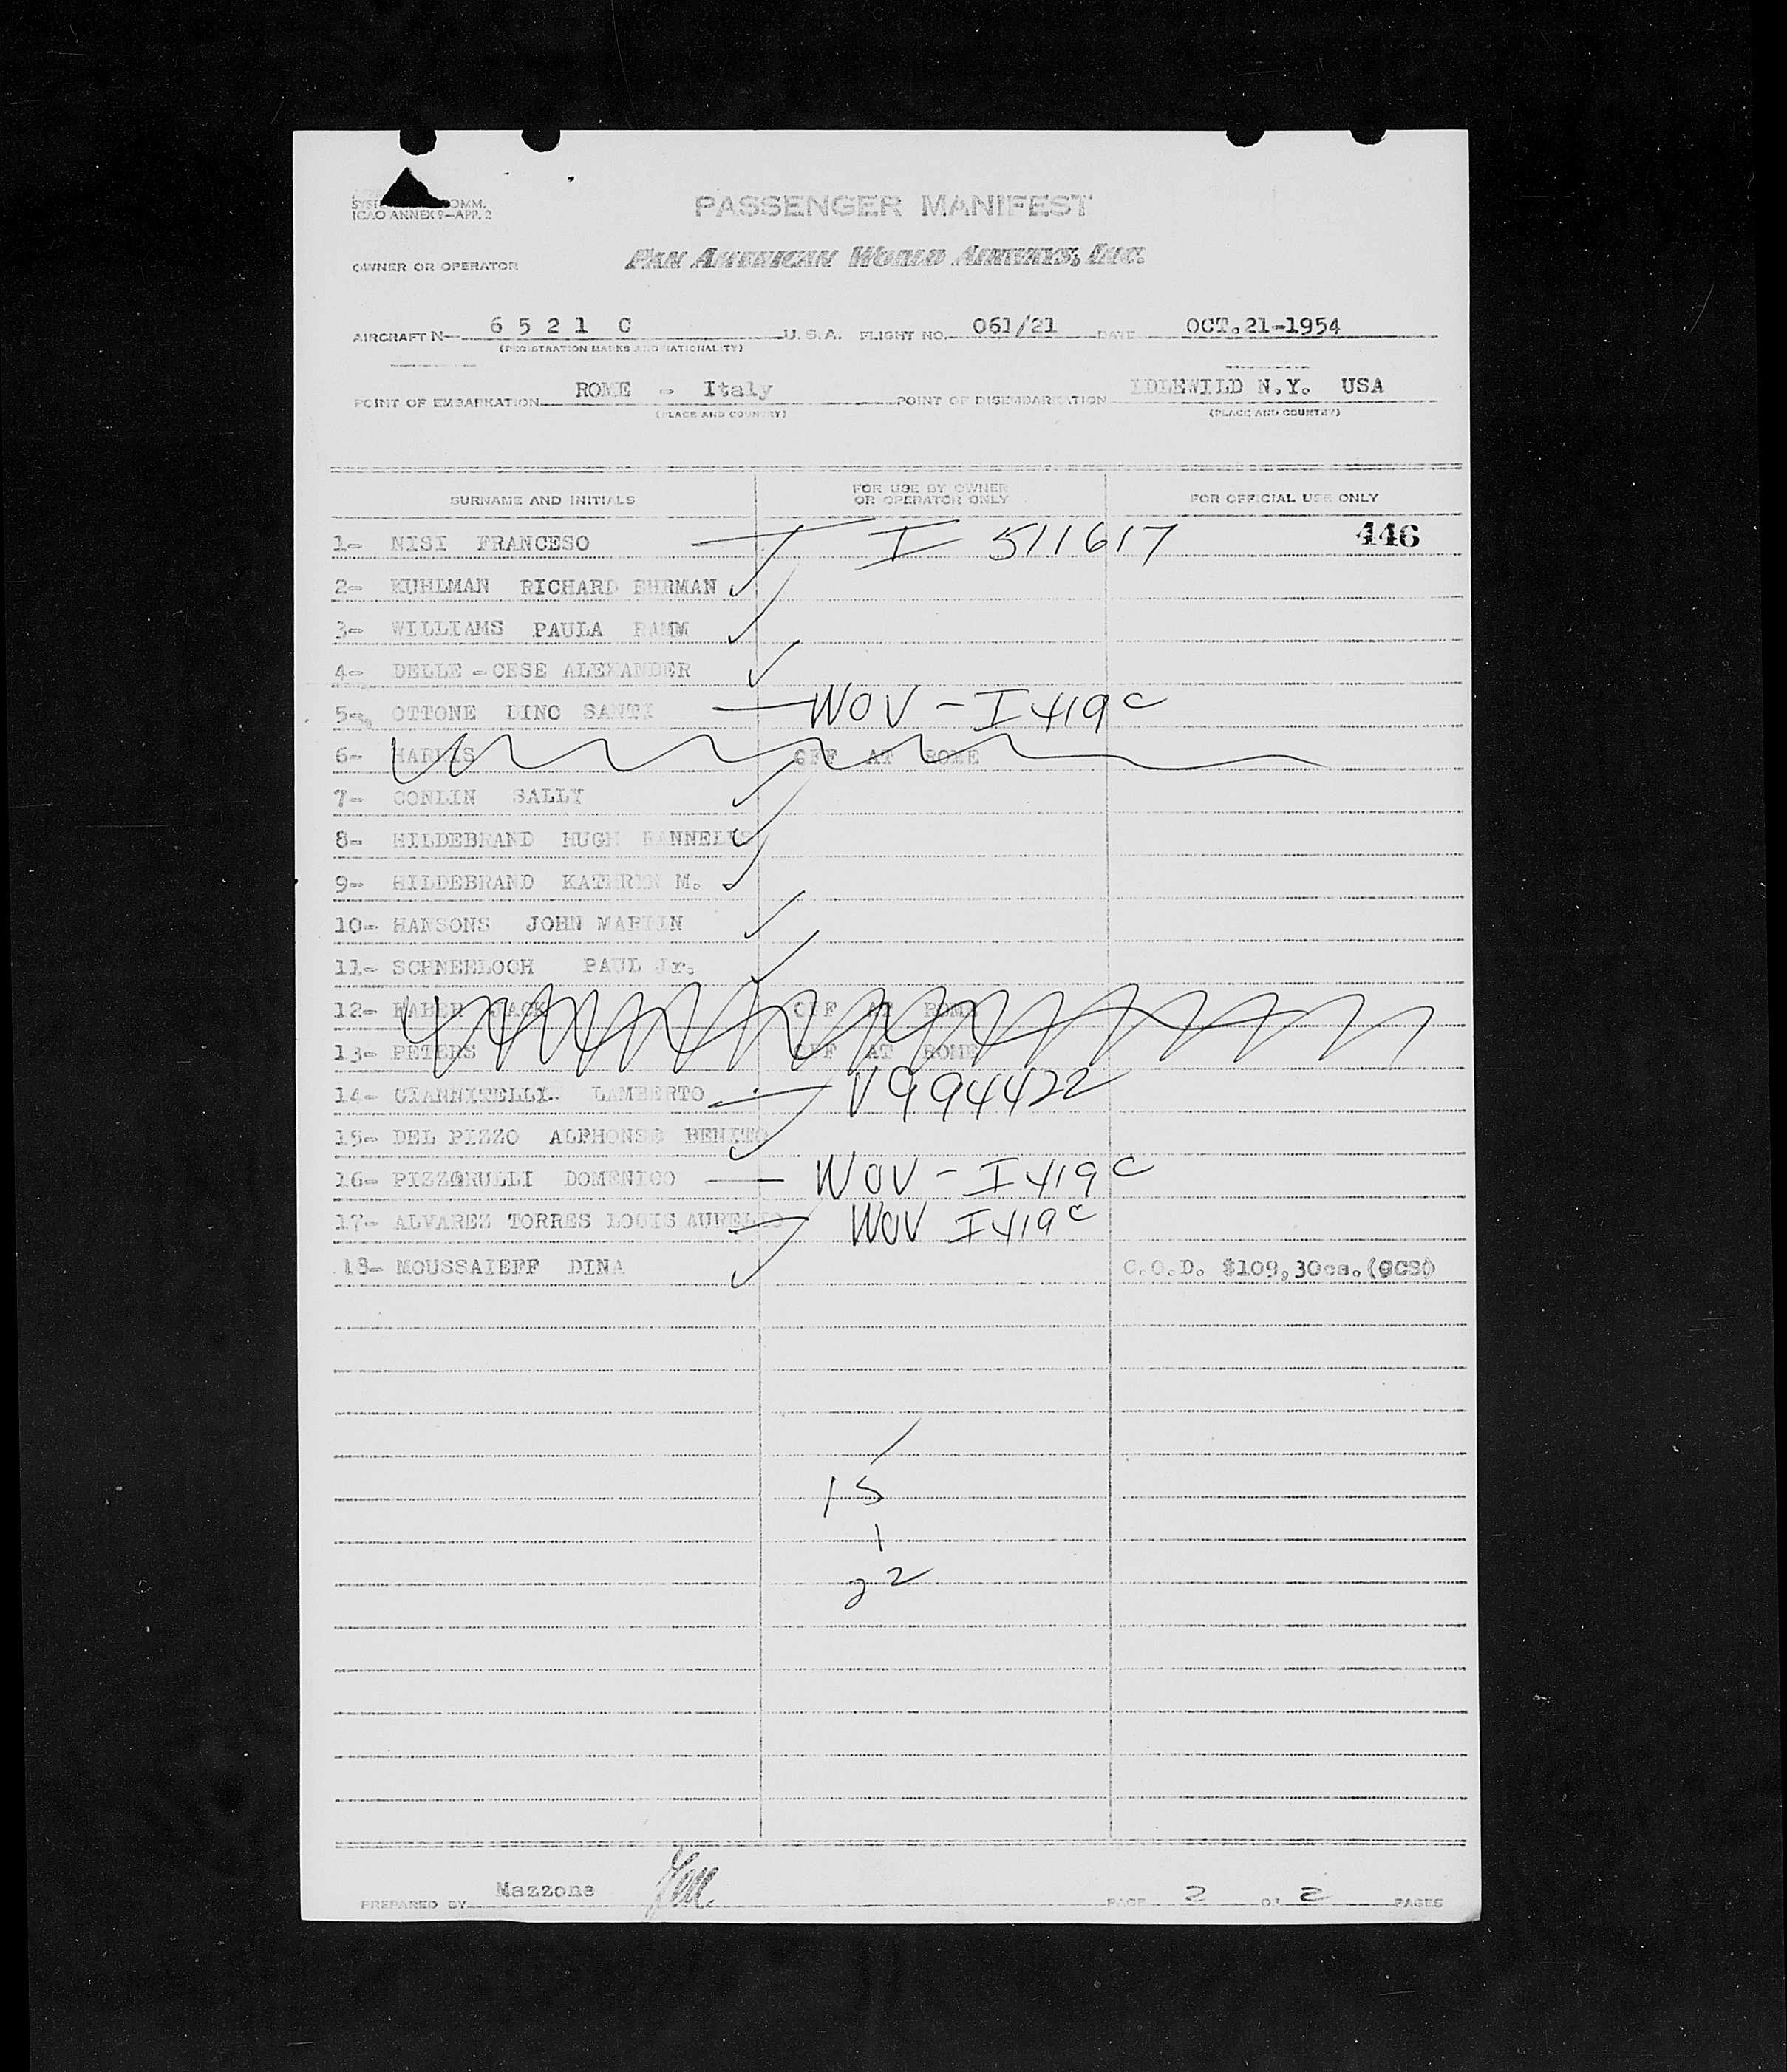 PASSENGER MANIFEST
ICAO ANNEX 9—APP. 2
OWNER OR OPERATOR PAN AMERICAN WORLD AIRWAYS, INC.
AIRCRAFT N— 6 5 2 1 C U. S. A. FLIGHT NO. 061/21 DATE OCT.21-1954
(REGISTRATION MARKS AND NATIONALITY)
POINT OF EMBARKATION ROME - Italy POINT OF DISEMBARKATION IDLEWILD N.Y. USA
(PLACE AND COUNTRY) (PLACE AND COUNTRY)
SURNAME AND INITIALS FOR USE BY OWNER OR OPERATOR ONLY FOR OFFICIAL USE ONLY
1- NISI FRANCESO I 511617 446
2- KUHLMAN RICHARD EHRMAN
3- WILLIAMS PAULA RAMM
4- DELLE - CESE ALEXANDER
5- OTTONE DINO SANTI WOV - I 419 C
6- HARRIS OFF AT ROME
7- CONLIN SALLY
8- HILDEBRAND HUGH RANNELLS
9- HILDEBRAND KATHRIN M.
10- HANSONS JOHN MARTIN
11- SCHNEELOCH PAUL Jr.
12- HABER JACK OFF AT ROME
13- PETERS OFF AT ROME
14- GIANNITELLI LAMBERTO V994422
15- DEL PIZZO ALPHONSE BENITO
16- PIZZORULLI DOMENICO WOV - I 419 C
17- ALVAREZ TORRES LOUIS AURELIO WOV I 419 C
18- MOUSSAIEFF DINA C.O.D. $109,30cs.(OCS)
15
1
22
PREPARED BY Mazzone PAGE 2 OF 2 PAGES